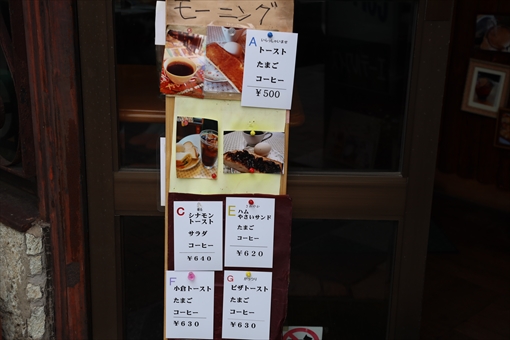 モーニング
A
いらっしゃいませ
トースト
たまご
コーヒー
￥500
C
シナモン
トースト
サラダ
コーヒー
￥640
E
ハム
やさいサンド
たまご
コーヒー
￥620
F
小倉トースト
たまご
コーヒー
￥630
G
ピザトースト
たまご
コーヒー
￥630